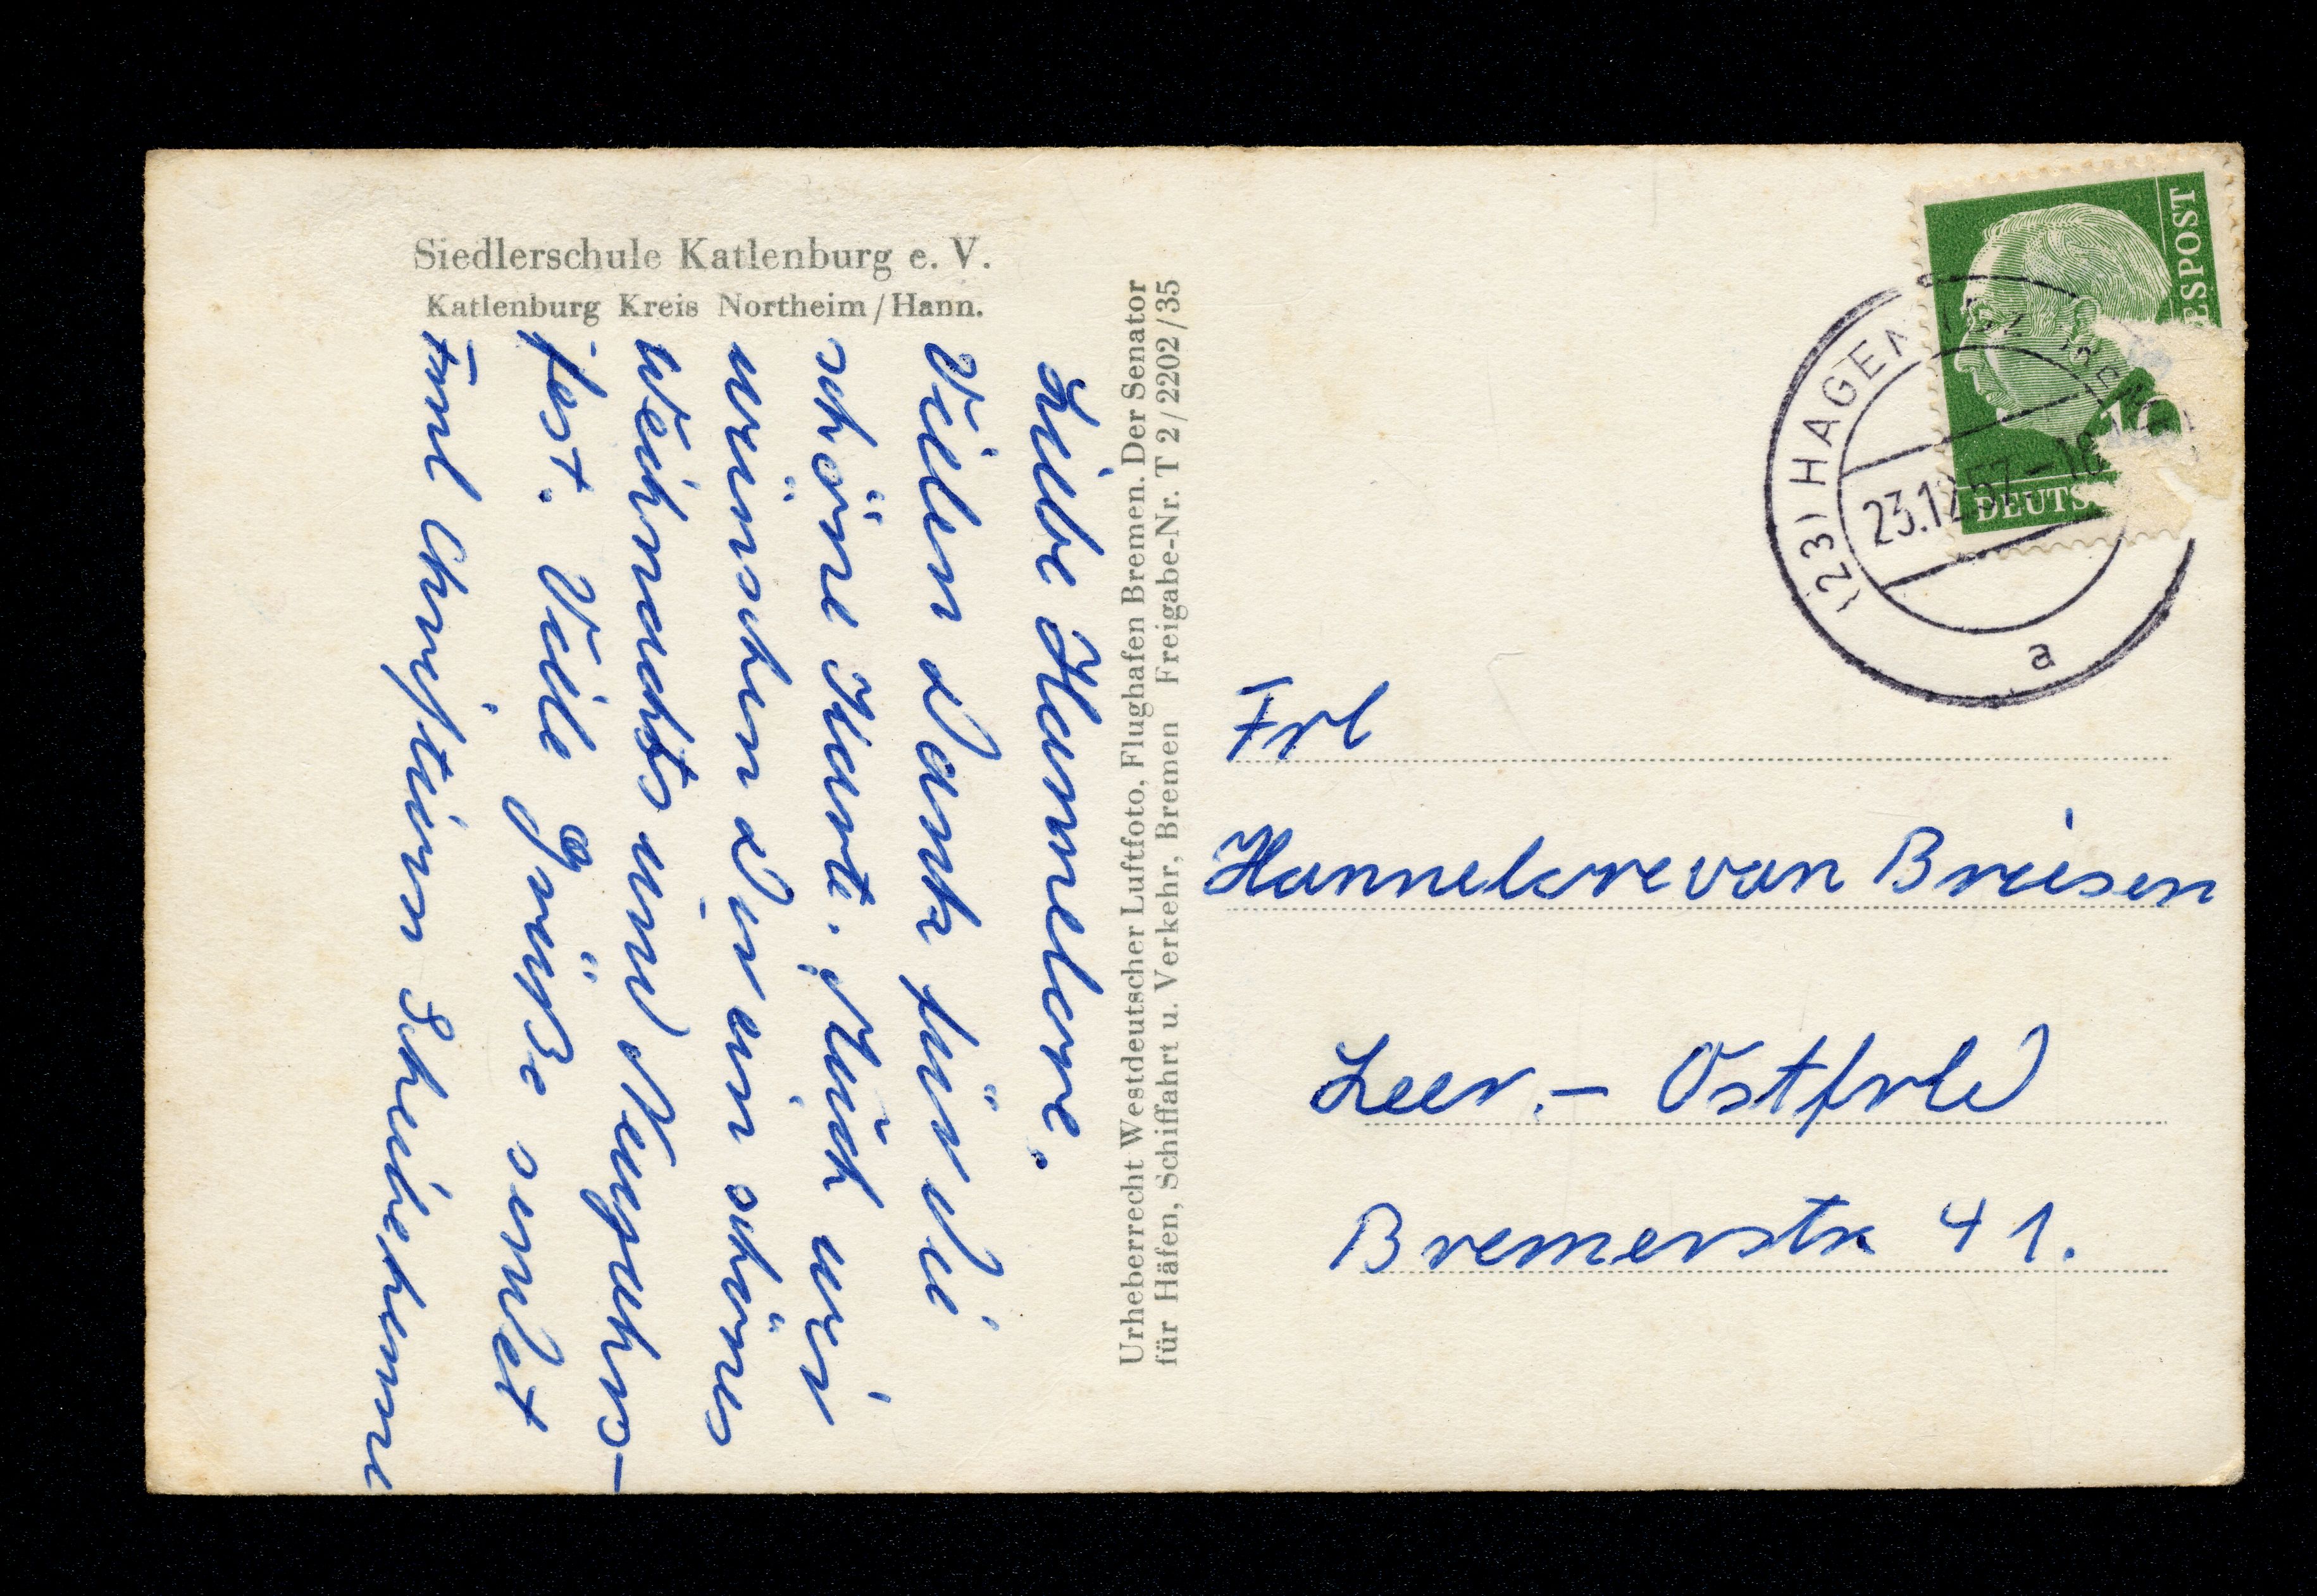 Siedlerschule Katlenburg e. V.
Katlenburg Kreis Northeim/Hann.
Liebe Hannelore.
Vielen Dank für die
schöne Karte. Auch wir
wünschen Dir ein schönes
Weihnachts und Neujahrs-
fest. Viele Grüße sendet
Fml Christian
Urheberrecht Westdeutscher Luftfoto, Flughafen Bremen. Der Senator
für Häfen, Schiffahrt u. Verkehr, Bremen Freigabe-Nr. T 2/2202/35
DEUTS
ESPOST
10
(23) HAGEN
23.12.57.-18
a
Frl
Hannelore van Breisen
Leer.- Ostfrld
Bremerstr 41.